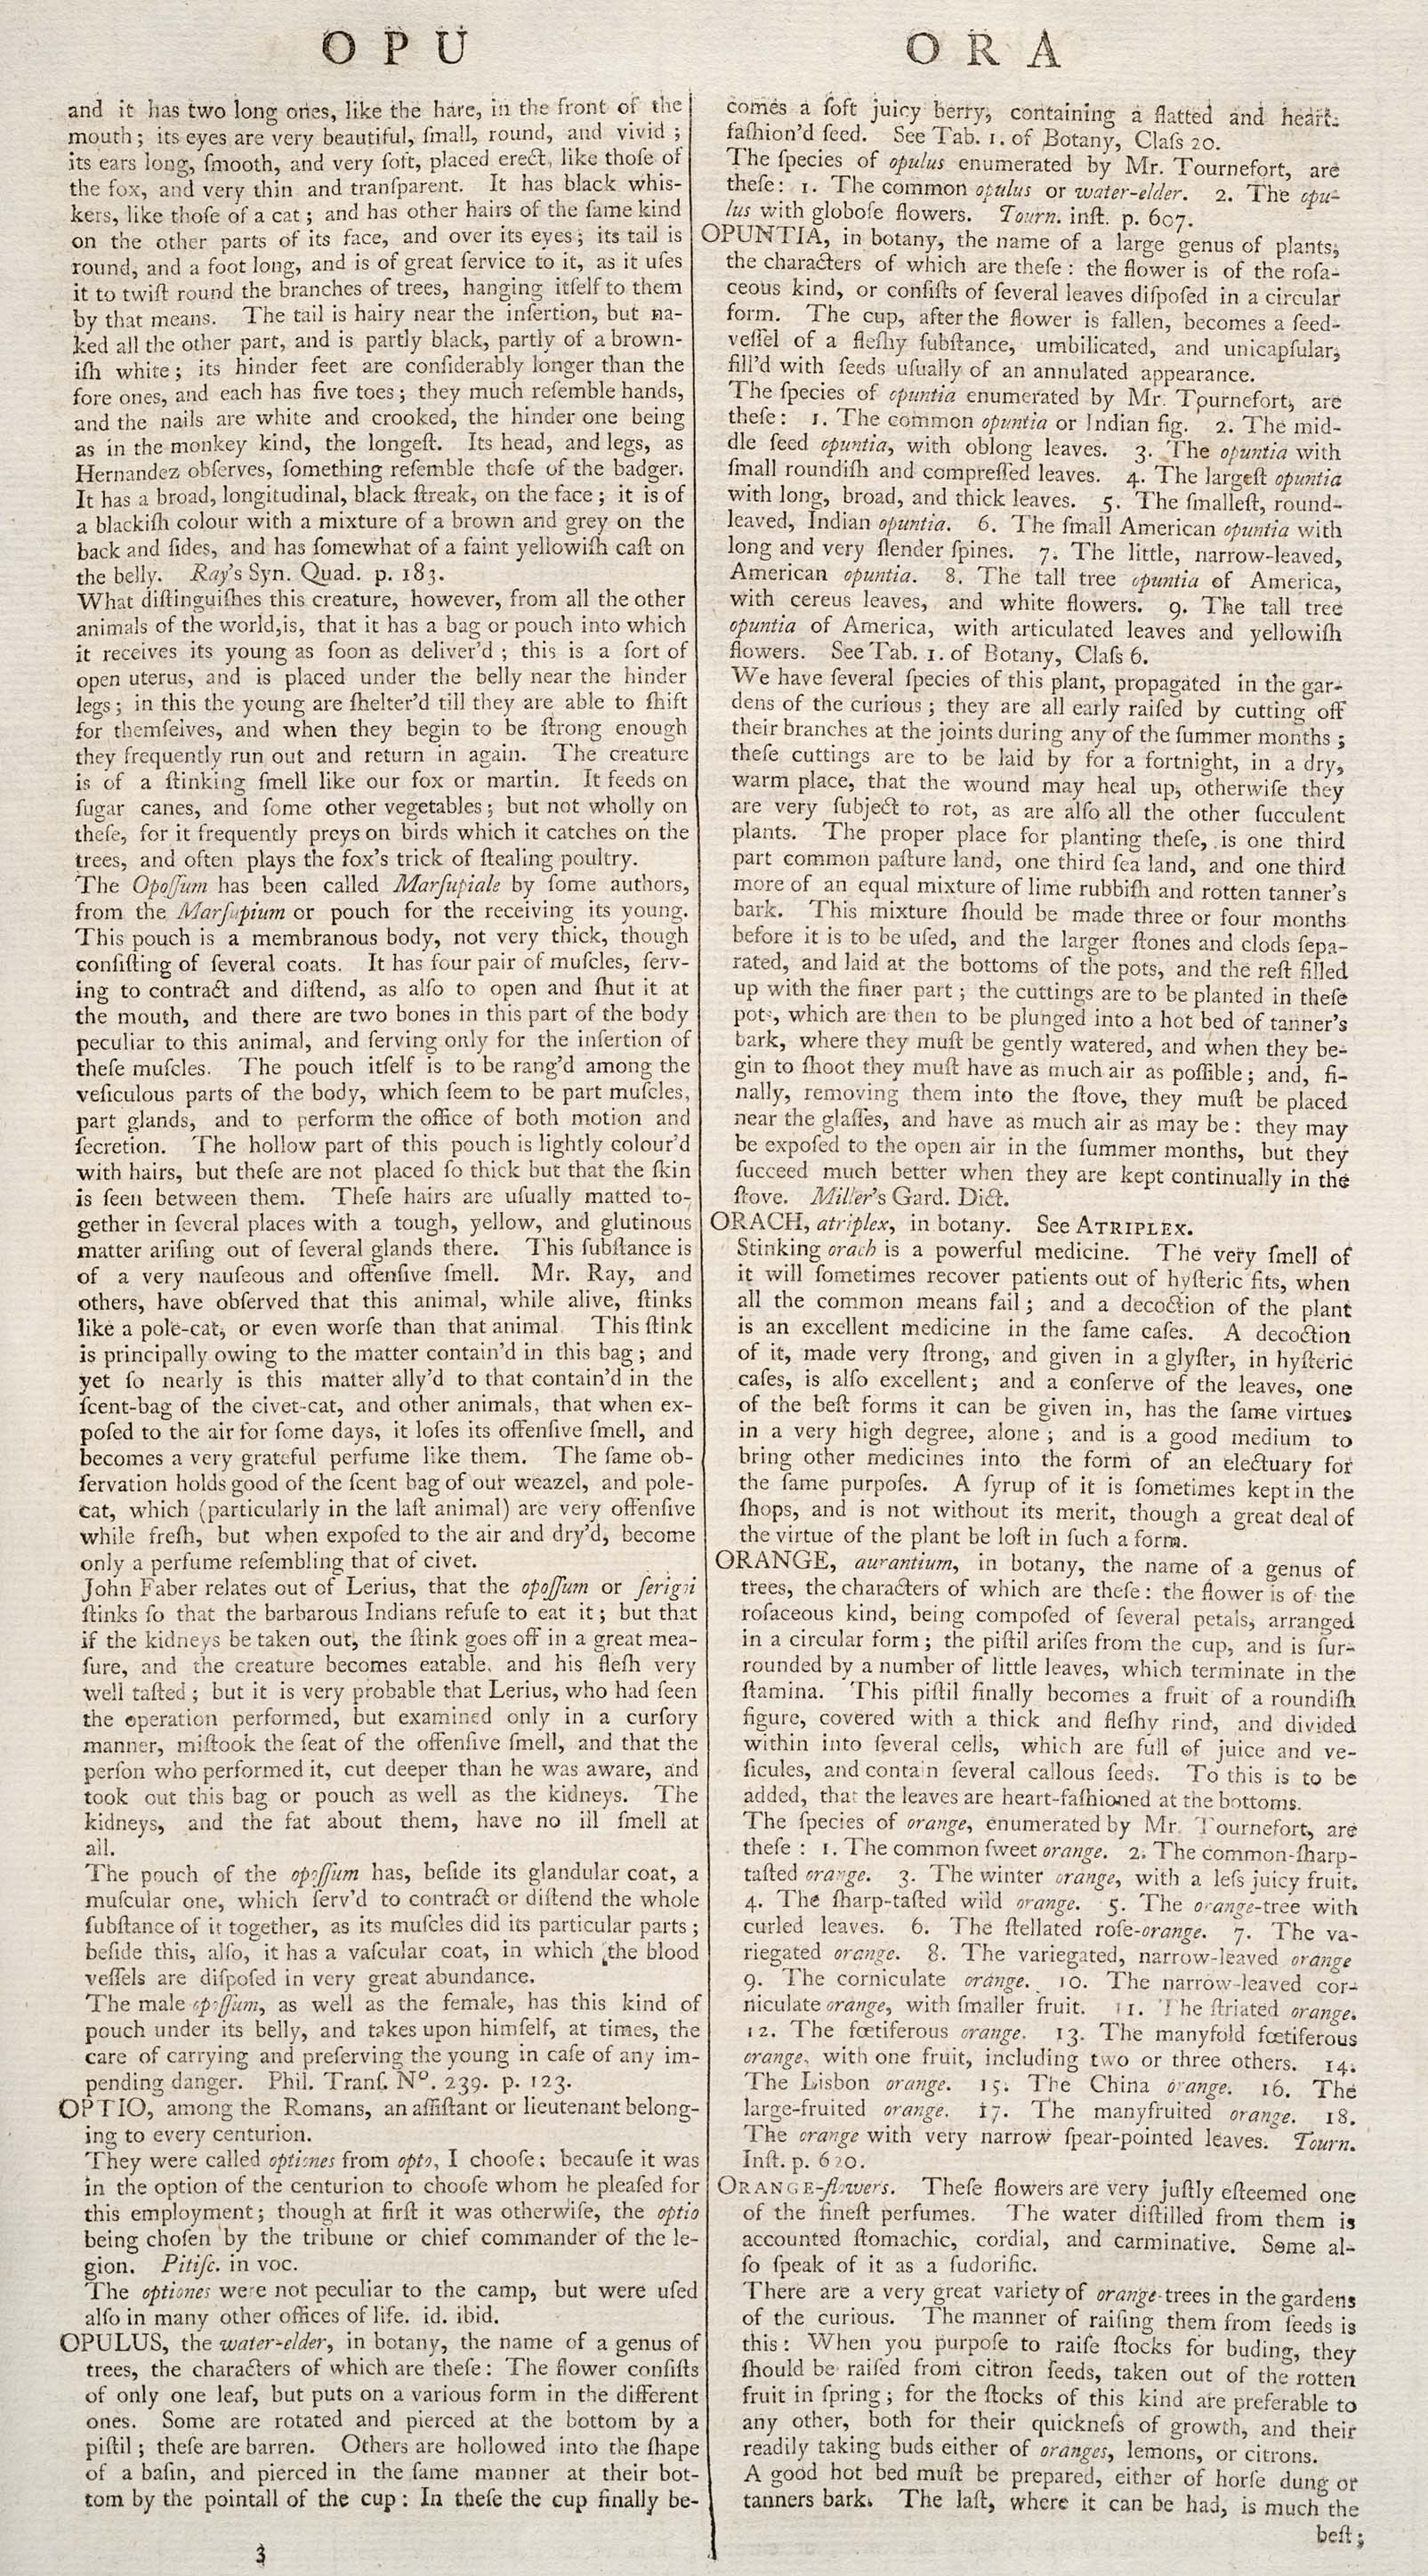 OPU
and it has two long ones, like the hare, in the front of the
mouth; its eyes are very beautiful, ſmall, round, and vivid;
its ears long, ſmooth, and very ſoft, placed erect, like thoſe of
the fox, and very thin and tranſparent. It has black whis-
kers, like thoſe of a cat; and has other hairs of the ſame kind
on the other parts of its face, and over its eyes; its tail is
round, and a foot long, and is of great ſervice to it, as it uſes
it to twiſt round the branches of trees, hanging itſelf to them
by that means. The tail is hairy near the inſertion, but na-
ked all the other part, and is partly black, partly of a brown-
iſh white; its hinder feet are conſiderably longer than the
fore ones, and each has five toes; they much reſemble hands,
and the nails are white and crooked, the hinder one being
as in the monkey kind, the longeſt. Its head, and legs, as
Hernandez obſerves, ſomething reſemble thoſe of the badger.
It has a broad, longitudinal, black ſtreak, on the face; it is of
a blackiſh colour with a mixture of a brown and grey on the
back and ſides, and has ſomewhat of a faint yellowiſh caſt on
the belly. Ray's Syn. Quad. p. 183.
What diſtinguiſhes this creature, however, from all the other
animals of the world, is, that it has a bag or pouch into which
it receives its young as ſoon as deliver'd; this is a ſort of
open uterus, and is placed under the belly near the hinder
legs; in this the young are ſhelter'd till they are able to ſhift
for themſelves, and when they begin to be ſtrong enough
they frequently run out and return in again. The creature
is of a ſtinking ſmell like our fox or martin. It feeds on
ſugar canes, and ſome other vegetables; but not wholly on
theſe, for it frequently preys on birds which it catches on the
trees, and often plays the fox's trick of ſtealing poultry.
The Opoſſum has been called Marſupiale by ſome authors,
from the Marſupium or pouch for the receiving its young.
This pouch is a membranous body, not very thick, though
conſiſting of ſeveral coats. It has four pair of muſcles, ſerv-
ing to contract and diſtend, as alſo to open and ſhut it at
the mouth, and there are two bones in this part of the body
peculiar to this animal, and ſerving only for the inſertion of
theſe muſcles. The pouch itſelf is to be rang'd among the
veſiculous parts of the body, which ſeem to be part muſcles,
part glands, and to perform the office of both motion and
ſecretion. The hollow part of this pouch is lightly colour'd
with hairs, but theſe are not placed ſo thick but that the ſkin
is ſeen between them. Theſe hairs are uſually matted to-
gether in ſeveral places with a tough, yellow, and glutinous
matter ariſing out of ſeveral glands there. This ſubſtance is
of a very nauſeous and offenſive ſmell. Mr. Ray, and
others, have obſerved that this animal, while alive, ſtinks
like a pole-cat, or even worſe than that animal. This ſtink
is principally owing to the matter contain'd in this bag; and
yet ſo nearly is this matter ally'd to that contain'd in the
ſcent-bag of the civet-cat, and other animals, that when ex-
poſed to the air for ſome days, it loſes its offenſive ſmell, and
becomes a very grateful perfume like them. The ſame ob-
ſervation holds good of the ſcent bag of our weazel, and pole-
cat, which (particularly in the laſt animal) are very offenſive
while freſh, but when expoſed to the air and dry'd, become
only a perfume reſembling that of civet.
John Faber relates out of Lerius, that the opoſſum or ſerigii
ſtinks ſo that the barbarous Indians refuſe to eat it; but that
if the kidneys be taken out, the ſtink goes off in a great mea-
ſure, and the creature becomes eatable, and his fleſh very
well taſted; but it is very probable that Lerius, who had ſeen
the operation performed, but examined only in a curſory
manner, miſtook the ſeat of the offenſive ſmell, and that the
perſon who performed it, cut deeper than he was aware, and
took out this bag or pouch as well as the kidneys. The
kidneys, and the fat about them, have no ill ſmell at
all.
The pouch of the opoſſum has, beſide its glandular coat, a
muſcular one, which ſerv'd to contract or diſtend the whole
ſubſtance of it together, as its muſcles did its particular parts;
beſide this, alſo, it has a vaſcular coat, in which the blood
veſſels are diſpoſed in very great abundance.
The male opoſſum, as well as the female, has this kind of
pouch under its belly, and takes upon himſelf, at times, the
care of carrying and preſerving the young in caſe of any im-
pending danger. Phil. Tranſ. Nº. 239. p. 123.
OPTIO, among the Romans, an aſſiſtant or lieutenant belong-
ing to every centurion.
They were called optiones from opto, I chooſe; becauſe it was
in the option of the centurion to chooſe whom he pleaſed for
this employment; though at firſt it was otherwiſe, the optio
being choſen by the tribune or chief commander of the le-
gion. Pitiſc. in voc.
The optiones were not peculiar to the camp, but were uſed
alſo in many other offices of life. id. ibid.
OPULUS, the water-elder, in botany, the name of a genus of
trees, the characters of which are theſe: The flower conſiſts
of only one leaf, but puts on a various form in the different
ones. Some are rotated and pierced at the bottom by a
piſtil; theſe are barren. Others are hollowed into the ſhape
of a baſin, and pierced in the ſame manner at their bot-
tom by the pointall of the cup: In theſe the cup finally be-
3
ORA
comes a ſoft juicy berry, containing a flatted and heart-
faſhion'd ſeed. See Tab. 1. of Botany, Claſs 20.
The ſpecies of opulus enumerated by Mr. Tournefort, are
theſe: 1. The common opulus or water-elder. 2. The opu-
lus with globoſe flowers. Tourn. inſt. p. 607.
OPUNTIA, in botany, the name of a large genus of plants,
the characters of which are theſe: the flower is of the roſa-
ceous kind, or conſiſts of ſeveral leaves diſpoſed in a circular
form. The cup, after the flower is fallen, becomes a ſeed-
veſſel of a fleſhy ſubſtance, umbilicated, and unicapſular,
fill'd with ſeeds uſually of an annulated appearance.
The ſpecies of opuntia enumerated by Mr. Tournefort, are
theſe: 1. The common opuntia or Indian fig. 2. The mid-
dle ſeed opuntia, with oblong leaves. 3. The opuntia with
ſmall roundiſh and compreſſed leaves. 4. The largeſt opuntia
with long, broad, and thick leaves. 5. The ſmalleſt, round-
leaved, Indian opuntia. 6. The ſmall American opuntia with
long and very ſlender ſpines. 7. The little, narrow-leaved,
American opuntia. 8. The tall tree opuntia of America,
with cereus leaves, and white flowers. 9. The tall tree
opuntia of America, with articulated leaves and yellowiſh
flowers. See Tab. 1. of Botany, Claſs 6.
We have ſeveral ſpecies of this plant, propagated in the gar-
dens of the curious; they are all early raiſed by cutting off
their branches at the joints during any of the ſummer months;
theſe cuttings are to be laid by for a fortnight, in a dry,
warm place, that the wound may heal up, otherwiſe they
are very ſubject to rot, as are alſo all the other ſucculent
plants. The proper place for planting theſe, is one third
part common paſture land, one third ſea land, and one third
more of an equal mixture of lime rubbiſh and rotten tanner's
bark. This mixture ſhould be made three or four months
before it is to be uſed, and the larger ſtones and clods ſepa-
rated, and laid at the bottoms of the pots, and the reſt filled
up with the finer part; the cuttings are to be planted in theſe
pots, which are then to be plunged into a hot bed of tanner's
bark, where they muſt be gently watered, and when they be-
gin to ſhoot they muſt have as much air as poſſible; and, fi-
nally, removing them into the ſtove, they muſt be placed
near the glaſſes, and have as much air as may be: they may
be expoſed to the open air in the ſummer months, but they
ſucceed much better when they are kept continually in the
ſtove. Miller's Gard. Dict.
ORACH, atriplex, in botany. See ATRIPLEX.
Stinking orach is a powerful medicine. The very ſmell of
it will ſometimes recover patients out of hyſteric fits, when
all the common means fail; and a decoction of the plant
is an excellent medicine in the ſame caſes. A decoction
of it, made very ſtrong, and given in a glyſter, in hyſteric
caſes, is alſo excellent; and a conſerve of the leaves, one
of the beſt forms it can be given in, has the ſame virtues
in a very high degree, alone; and is a good medium to
bring other medicines into the form of an electuary for
the ſame purpoſes. A ſyrup of it is ſometimes kept in the
ſhops, and is not without its merit, though a great deal of
the virtue of the plant be loſt in ſuch a form.
ORANGE, aurantium, in botany, the name of a genus of
trees, the characters of which are theſe: the flower is of the
roſaceous kind, being compoſed of ſeveral petals, arranged
in a circular form; the piſtil ariſes from the cup, and is ſur-
rounded by a number of little leaves, which terminate in the
ſtamina. This piſtil finally becomes a fruit of a roundiſh
figure, covered with a thick and fleſhy rind, and divided
within into ſeveral cells, which are full of juice and ve-
ſicules, and contain ſeveral callous ſeeds. To this is to be
added, that the leaves are heart-faſhioned at the bottoms.
The ſpecies of orange, enumerated by Mr. Tournefort, are
theſe: 1. The common ſweet orange. 2. The common-ſharp-
taſted orange. 3. The winter orange, with a leſs juicy fruit.
4. The ſharp-taſted wild orange. 5. The orange-tree with
curled leaves. 6. The ſtellated roſe-orange. 7. The va-
riegated orange. 8. The variegated, narrow-leaved orange
9. The corniculate orange. 10. The narrow-leaved cor-
niculate orange, with ſmaller fruit. 11. The ſtriated orange.
12. The fœtiferous orange. 13. The manyfold fœtiferous
orange, with one fruit, including two or three others. 14.
The Lisbon orange. 15. The China orange. 16. The
large-fruited orange. 17. The manyfruited orange. 18.
The orange with very narrow ſpear-pointed leaves. Tourn.
Inſt. p. 620.
ORANGE-flowers. Theſe flowers are very juſtly eſteemed one
of the fineſt perfumes. The water diſtilled from them is
accounted ſtomachic, cordial, and carminative. Some al-
ſo ſpeak of it as a ſudorific.
There are a very great variety of orange-trees in the gardens
of the curious. The manner of raiſing them from ſeeds is
this: When you purpoſe to raiſe ſtocks for buding, they
ſhould be raiſed from citron ſeeds, taken out of the rotten
fruit in ſpring; for the ſtocks of this kind are preferable to
any other, both for their quickneſs of growth, and their
readily taking buds either of oranges, lemons, or citrons.
A good hot bed muſt be prepared, either of horſe dung or
tanners bark. The laſt, where it can be had, is much the
beſt;